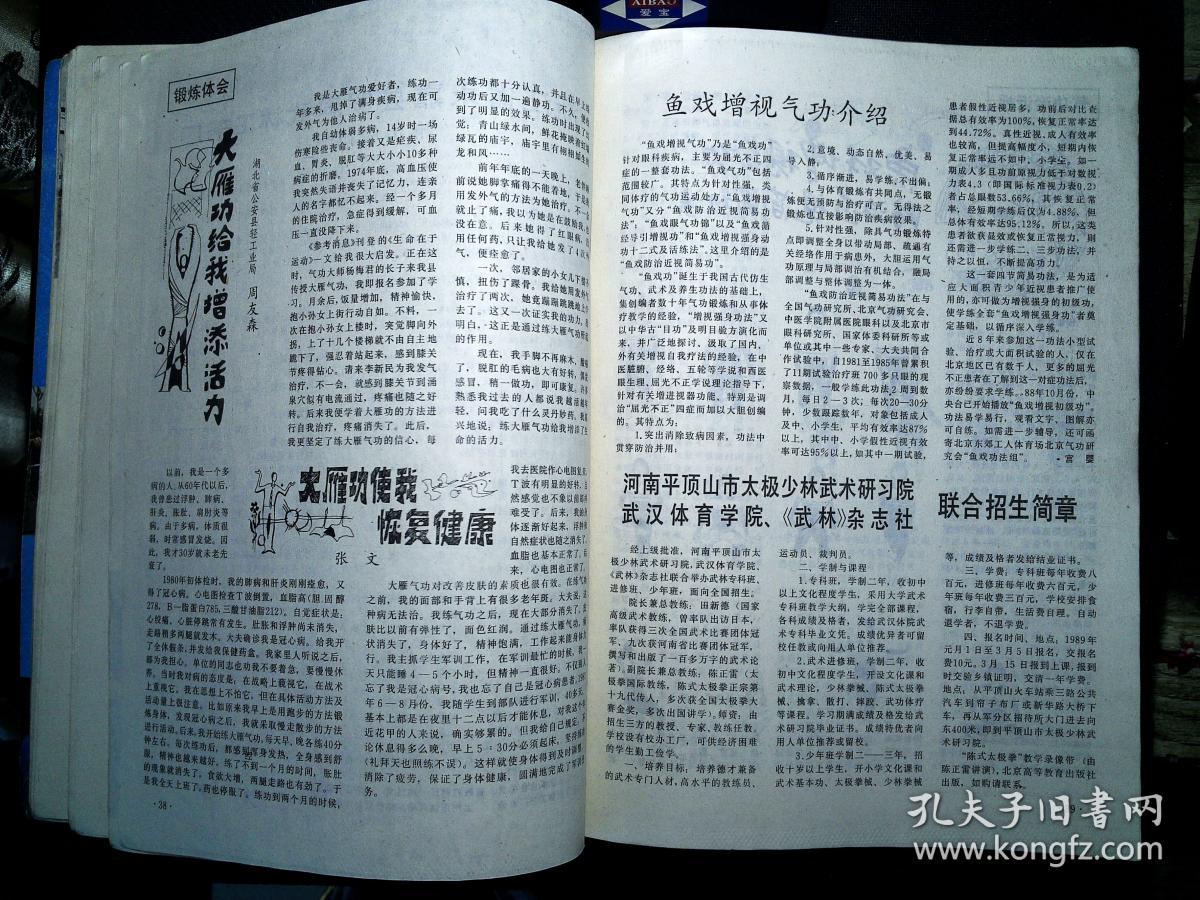 爱宝
锻炼体会
大雁功给我增添活力
湖北省公安县轻工业局 周友森
我是大雁气功爱好者,练功一
年多来,甩掉了满身疾病,现在可
发外气为他人治病了。
我自幼体弱多病,14岁时一场
伤寒险些丧命。接着又是疟疾、尿
血、胃炎、脱肛等大大小小10多种
病症的折磨。1974年底,高血压使
我突然失语并丧失了记忆力,连亲
人的名字都忆不起来。经一个多月
的住院治疗,急症得到缓解,可血
压一直没降下来。
《参考消息》刊登的《生命在于
运动》一文给我很大启发。正在这
时,气功大师杨梅君的长子来我县
传授大雁气功,我即报名参加了学
习。月余后,饭量增加,精神愉快,
抱小孙女上街行动自如。不料,一
次在抱小孙女上楼时,突觉脚向外
拐,上了十几个楼梯就不由自主地
跪下了,强忍着站起来,感到膝关
节疼得钻心。请来李新民为我发气
治疗,不一会,就感到膝关节到涌
泉穴似有电流通过,疼痛也随之好
转。后来我便学着大雁功的方法进
行自我治疗,疼痛消失了。此后,
我更坚定了练大雁气功的信心,每
次练功都十分认真,并且在早上练
动功后又加一遍静功。不久,便收
到了明显的效果。练功时出现了幻
觉;青山绿水间,鲜花掩映着红墙
绿瓦的庙宇,庙宇里有栩栩如生的
龙和风……
前年年底的一天晚上,老伴睡
前说她脚掌痛得不能着地,于是我
用发外气的方法为她治疗,不一会
就止了痛,我以为她是在鼓励我,
没在意。后来她得了红眼病,没
用任何药,只让我给她发了4次外
气,便痊愈了。
一次,邻居家的小女儿下楼不
慎,扭伤了踝骨。我给她用发外气
治疗了两次,她竟蹦蹦跳跳地上学
去了。这又一次证实我的功力,也
明白,这正是通过练大雁气功所起
的作用。
现在,我手脚不再麻木,瘫痪
了,脱肛的毛病也大有好转,偶尔
感冒,稍一做功,即可康复。许多
熟悉我过去的人都说我越活越年
轻,问我吃了什么灵丹妙药,我高
兴地说:练大雁气功给我增添了生
命的活力。
大雁功使我
恢复健康
张 文
以前,我是一个多
病的人。从60年代以后,
我曾患过浮肿、肺病、
肝炎、胀肚、肩肘炎等
病。由于多病,体质很
弱,时常感冒发烧。因
此,我才30岁就未老先
衰了。
1980年初体检时,我的肺病和肝炎刚刚痊愈,又
得了冠心病。心电图检查T波倒置,血脂高(胆固醇
278,B—脂蛋白785,三酸甘油脂212)。自觉症状是:
心绞痛,心脏停跳常有发生。肚胀和浮肿尚未消失,
走路稍多两腿就发木。大夫确诊我是冠心病。给我开
了全休假条,并发给我保健药盒。我家里人听说之后,
都为我担心。单位的同志也劝我不要着急,要慢慢休
养。当时我对病的态度是,在战略上藐视它,在战术
上重视它。我在思想上不怕它,但在具体活动方法及
活动量上很注意。比如原来我早上是用跑步的方法锻
炼身体,发现冠心病之后,我就采取慢走散步的方法
进行活动。后来,我开始练大雁气功,每天早、晚各练40分
钟左右。每次练功后,都感到浑身发热,全身感到舒
服,精神也越来越好。练了不到一个月的时间,胀肚
的现象就消失了。食欲大增,两腿走路也有劲了。于
是我全天上班了。药也停服了。练功到两个月的时候,
我去医院作心电图复查,
T波有明显的好转。当
然感觉也不象以前那样
难受了。后来,我的身
体逐渐好起来,浮肿等
自然症状也随之消失了。
血脂也基本正常了。后
来,心电图也正常了。
大雁气功对改善皮肤的素质也很有效。在练气功
之前,我的面部和手背上有很多老年斑。大夫说,这
种病无法治。我练气功之后,现在大部分消失了。皮
肤比以前有弹性了,面色红润。通过练大雁气功,病
状消失了,身体好了,精神饱满,工作起来能身体力
行。我主抓学生军训工作,在军训最忙的时候,我一
天只能睡4—5个小时,但精神一直很好。不仅别人
忘了我是冠心病号,我也忘了自己是冠心病患者。1987
年6—8月份,我随学生到部队进行军训,40多天,
基本上都是在夜里十二点以后才能休息,对我这个年
近花甲的人来说,确实够累的。但我给自己规定,不
论休息得多么晚,早上5:30分必须起床,坚持练功
(礼拜天也照练不误)。这样就使身体得到及时调整,
消除了疲劳,保证了身体健康,圆满地完成了军训任
务。
·38·
鱼戏增视气功介绍
“鱼戏增视气功”乃是“鱼戏功”
针对眼科疾病,主要为屈光不正四
症的一整套功法。“鱼戏气功”包括
范围较广。其特点为针对性强,类
同体疗的气功运动处方。“鱼戏增视
气功”又分“鱼戏防治近视简易功
法”;“鱼戏眼气功锦”以及“鱼戏循
经导引增视功”和“鱼戏增视强身动
功十二式及活练法”。这里介绍的是
“鱼戏防治近视简易功法”。
“鱼戏功”诞生于我国古代仿生
气功、武术及养生功法的基础上,
集创编者数十年气功锻炼和从事体
疗教学的经验,“增视强身功法”又
以中华古“目功”及明目验方演化而
来,并广泛地探讨、汲取了国内、
外有关增视自我疗法的经验,在中
医脏腑、经络、五轮等学说和西医
眼生理、屈光不正学说理论指导下,
针对有关增进视器功能、特别是调
治“屈光不正”四症而加以大胆创编
的。其特点为:
1.突出消除致病因素,功法中
贯穿防治并用;
2.意境、动态自然,优美、易
导入静。
3.循序渐进,易学练,不出偏;
4.与体育锻炼有共同点,无锻
炼便无预防与治疗可言。无得法之
锻炼也直接影响防治疾病效果。
5.针对性强,除具气功锻炼特
点即调整全身以带动局部、疏通有
关经络作用于病患外,大胆运用气
功原理与局部调治有机结合,融局
部调整与整体调整为一体。
“鱼戏防治近视简易功法”在与
全国气功研究所、北京气功研究会、
中医学院附属医院眼科以及北京市
眼科研究所、国家体委科研所等或
单位或其中一些专家、大夫共同合
作试验中,自1981至1985年曾累积
了11期试验治疗班700多只眼的观
察数据,一般学练此功法2周到数
月,每日2—3次;每次20—30分
钟,少数跟踪数年,对象包括成人
及中、小学生,平均有效率达87%
以上,其中中、小学假性近视有效
率可达95%以上,如其中一期试验,
患者假性近视居多,功前后对比查
据总有效率为100%,恢复正常率达
到44.72%。真性近视、成人有效率
也较高,但提高幅度小,短期内恢
复正常率远不如中、小学生。如一
期成人多且功前原视力低于对数视
力表4.3(即国际标准视力表0.2)
者占总眼数53.66%,其恢复正常
率,经短期学练后仅为4.88%,但
总体有效率达95.12%。所以,这类
患者欲获显效或恢复正常视力,则
还需进一步学练二、三步功法,并
持之以恒,不断提高功力。
这一套四节简易功法,是为适
应大面积青少年近视患者推广使
用的,亦可做为增视强身的初级功,
使学练全套“鱼戏增视强身功”者奠
定基础,以循序深入学练。
近8年来参加这一功法小型试
验、治疗或大面积试验的人,仅在
北京地区已有数千人,更多的屈光
不正患者在了解到这一对症功法后,
亦纷纷要求学练。88年10月份,中
央台已开始播放“鱼戏增视初级功”。
功法易学易行,观看文字,图解亦
可自练。如需进一步辅导,还可函
寄北京东郊工人体育场北京气功研
究会“鱼戏功法组”。
·宫 婴
河南平顶山市太极少林武术研习院
武汉体育学院、《武林》杂志社
联合招生简章
经上级批准,河南平顶山市太
极少林武术研习院,武汉体育学院、
《武林》杂志社联合举办武林专科班、
进修班、少年班,面向全国招生。
院长兼总教练:田新德(国家
高级武术教练,曾率队出访日本,
率队获得三次全国武术比赛团体冠
军、九次获河南省比赛团体冠军,
撰写和出版了一百多万字的武术论
著)。副院长兼总教练:陈正雷(太
极拳国际教练,陈式太极拳正宗第
十九代传人,多次获全国太极拳大
赛金奖,多次出国讲学)。师资:由
招生三方的教授、专家、教练任教。
学校设有校办工厂,可供经济困难
的学生勤工俭学。
一、培养目标,培养德才兼备
的武术专门人材,高水平的教练员、
运动员、裁判员。
二、学制与课程
1.专科班,学制二年,收初中
以上文化程度学生,采用大学武术
专科班教学大纲,学完全部课程,
各科成绩及格者,发给武汉体院武
术专科毕业文凭。成绩优异者可留
校任教或向用人单位推荐。
2.武术进修班,学制二年,收
初中文化程度学生,开设文化课和
武术理论,少林拳械、陈式太极拳
械、擒拿、散打、摔跤、武功体疗
等课程。学习期满成绩及格发给武
术研习院毕业证书。成绩特优者向
用人单位推荐或留校。
3.少年班学制二——三年,招
收十岁以上学生,开小学文化课和
武术基本功、太极拳械、少林拳械
等,成绩及格者发给结业证书。
三、学费,专科班每年收费八
百元,进修班每年收费六百元,少
年班每年收费三百元,学校安排食
宿,行李自带,生活费自理。自动
退学者,不退学费。
四、报名时间、地点:1989年
元月1日至3月5日报名,交报名
费10元。3月15日报到上课,报到
时交验乡镇证明,交清一年学费。
地点,从平顶山火车站乘三路公共
汽车到帘子布厂或新华路大桥下
车,再从军分区招待所大门进去向
东400米,即到平顶山市太极少林武
术研习院。
“陈式太极拳”教学录像带(由
陈正雷讲演),北京高等教育出版社
出版,如购请联系。
孔夫子旧书网
www.kongfz.com